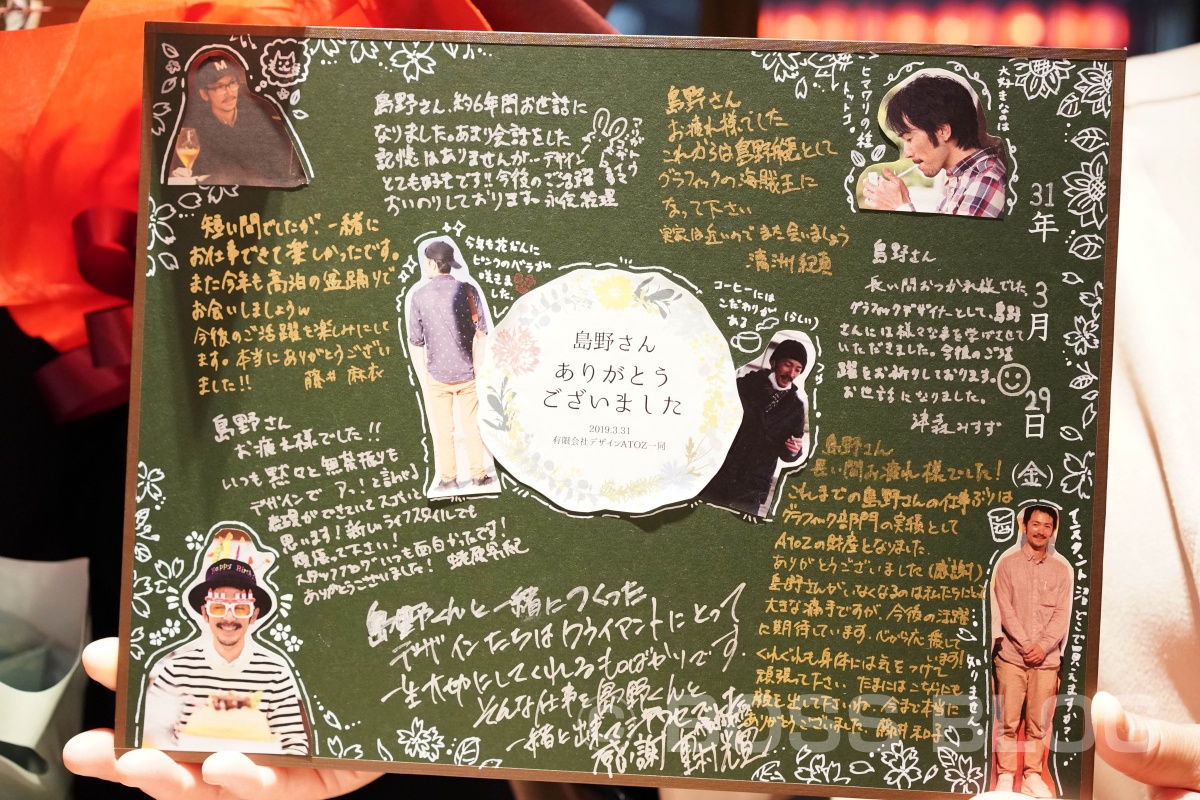 島野さん、約6年間お世話に
なりました。あまり会話をした
記憶はありませんが…デザイン
とても好きです!!今後のご活躍
おいのりしております
島野さん
お疲れ様でした
これからは島野船長として
グラフィックの海賊王に
なって下さい
実家は近いのでまた会いましょう
大好きなのは
ヒマワリの種
トットコ。
31年
3月
29日
(金)
短い間でしたが、一緒に
お仕事できて楽しかったです。
また今年も高泊の盆踊りで
お会いしましょうw
今後のご活躍も楽しみにして
ます。本当にありがとうござい
ました!! 藤井 麻衣
今年も花だんに
ピンクのバラが
咲きました。
コーヒーには
こだわりが
ある
(らしい)
島野さん
ありがとう
ございました
2019.3.31
有限会社デザインATOZ一同
島野さん
長い間おつかれ様でした。
グラフィックデザイナーとして、島野
さんには様々な事を学ばさせて
いただきました。今後のご活
躍をお祈りしております。
お世話になりました。
津森みすず
島野さん
お疲れ様でした!!
いつも黙々と無茶振りも
デザインで アっ!と言わす
表現ができていてスゴいと
思います!新しいライフスタイルでも
頑張って下さい!
スタッフブログいつも面白かったです!
ありがとうございました!
島野さん
長い間お疲れ様でした!
これまでの島野さんの仕事ぶりは
グラフィック部門の実績として
AtoZの財産となりました。
ありがとうございました(感謝)
島野さんがいなくなるのは私たちにとって
大きな痛手ですが、今後の活躍
に期待しています。心から応援して
います!
くれぐれも身体には気をつけて
頑張って下さい。たまにはこちらにも
顔を出して下さいね。今まで本当に
ありがとうございました。藤井和子
島野くんと一緒につくった
デザインたちはクライアントにとって
一生大切にしてくれるものばかりです。
そんな仕事を島野くんと
一緒に出来てシアワセでした
感謝
インスタントジョンソンどこで買えますか?
知りません
Happy Birth
BOSS BLOG